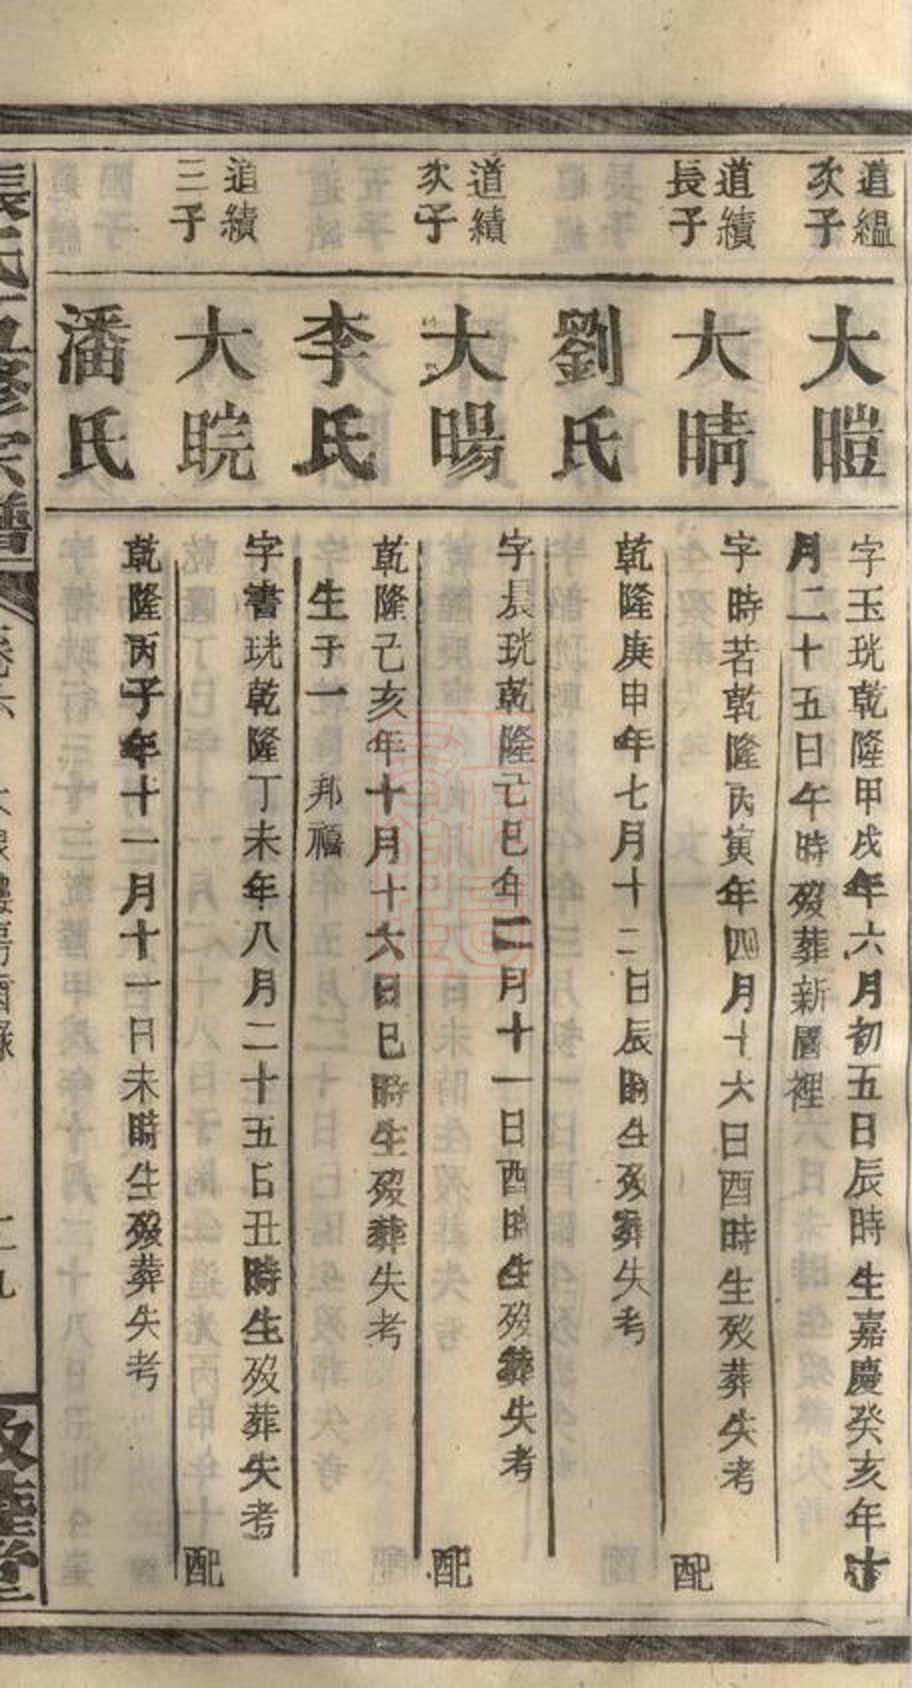 道緼
次子
大暟
字玉珖乾隆甲戌年六月初五日辰時生嘉慶癸亥年十
月二十五日午時殁葬新圖裡
道續
長子
大晴
字時若乾隆丙寅年四月十六日酉時生殁葬失考
配
劉氏
乾隆庚申年七月十二日辰時生殁葬失考
道續
次子
大暘
字晨珖乾隆己巳年二月十一日酉時生殁葬失考
配
李氏
乾隆己亥年十月十六日巳時生殁葬失考
生子一 邦禧
道續
三子
大睆
字書珖乾隆丁未年八月二十五日丑時生殁葬失考
配
潘氏
乾隆丙子年十一月十一日未時生殁葬失考
張氏五修宗譜